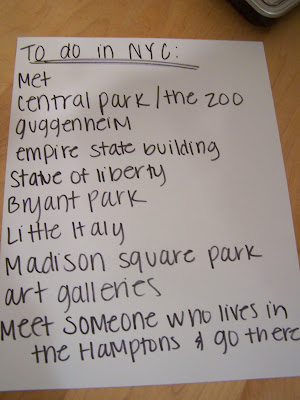 To do in NYC:
Met
central park / the zoo
guggenheim
empire state building
Statue of liberty
Bryant Park
Little Italy
Madison square park
art galleries
Meet someone who lives in
the Hamptons & go there